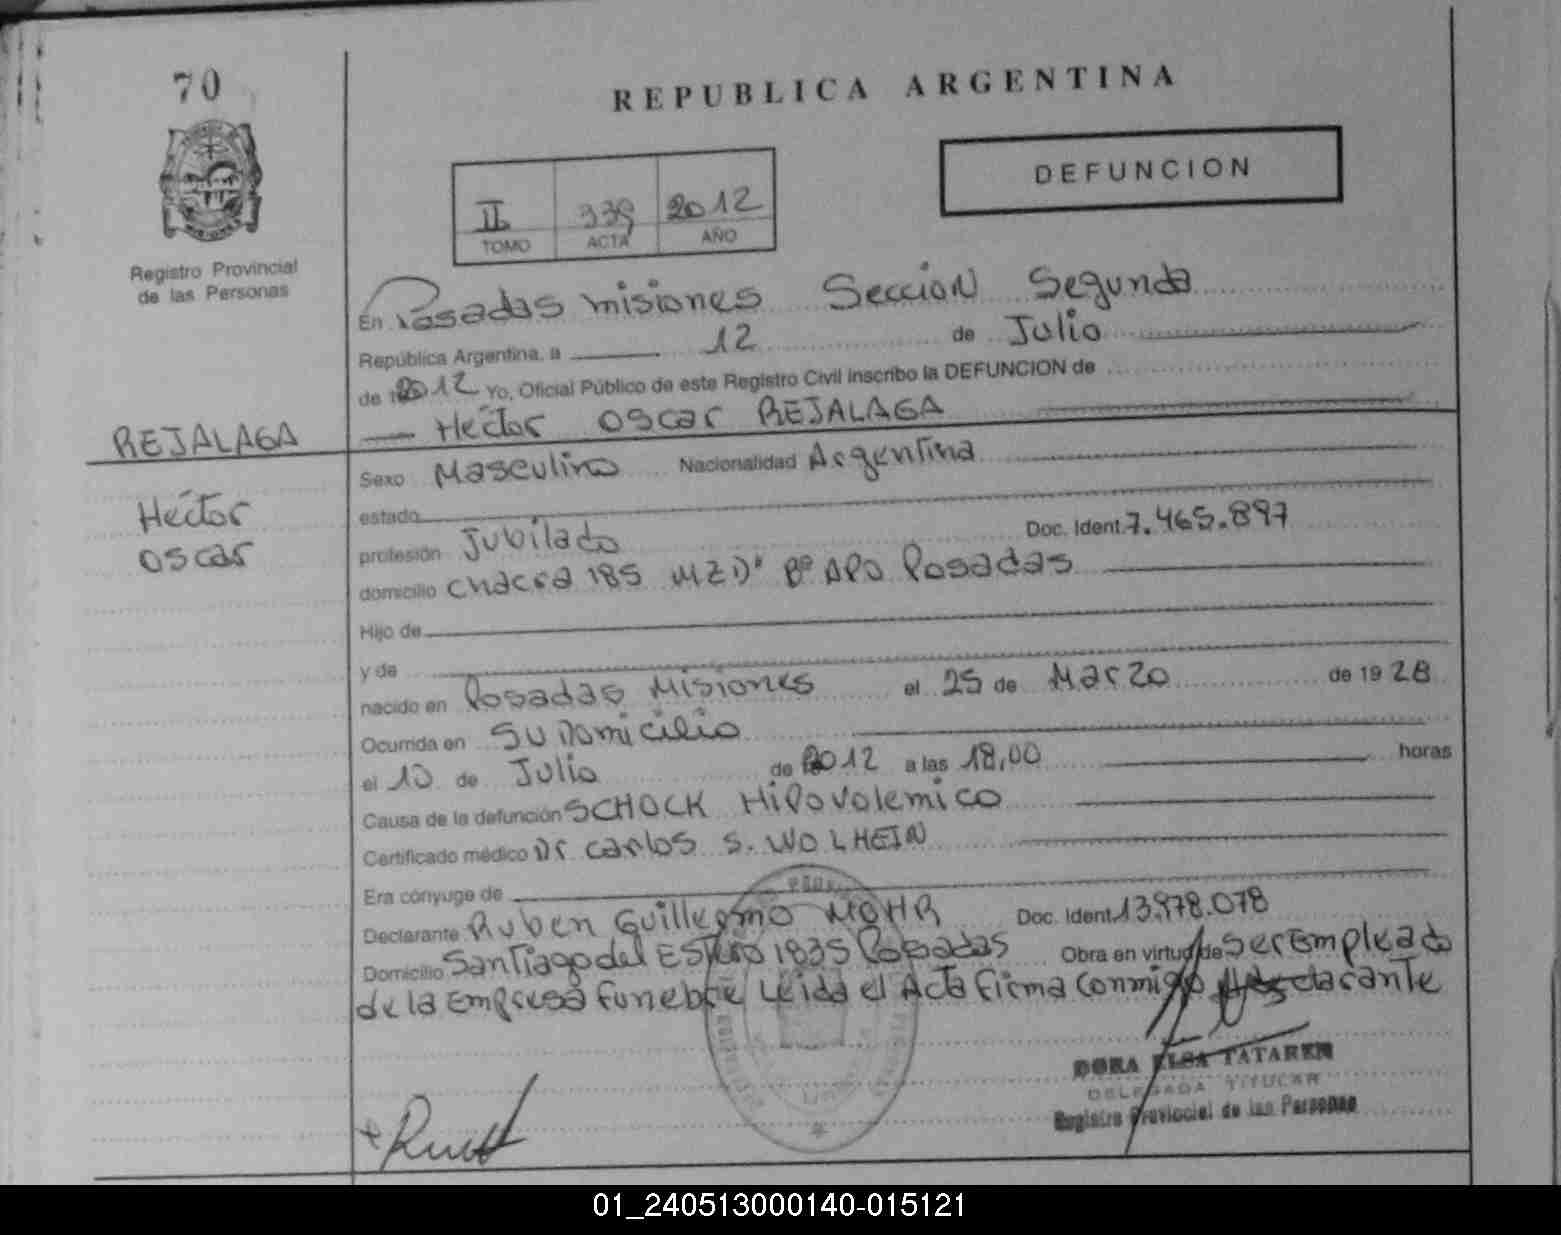 70
REPUBLICA ARGENTINA
DEFUNCION
II 339 2012
TOMO ACTA AÑO
Registro Provincial
de las Personas
En Posadas misiones Seccion Segunda
República Argentina, a 12 de Julio
de 2012 Yo, Oficial Público de este Registro Civil inscribo la DEFUNCION de
Hector Oscar REJALAGA
REJALAGA
Hector
Oscar
Sexo Masculino Nacionalidad Argentina
estado
profesión Jubilado Doc. Ident. 7.465.897
domicilio Chacra 185 MZ D' Bº APO Posadas
Hijo de
y de
nacido en Posadas Misiones el 25 de Marzo de 1928
Ocurrida en Su Domicilio
el 10 de Julio de 2012 a las 18,00 horas
Causa de la defunción SCHOCK Hipovolemico
Certificado médico Dr Carlos S. WOLHEIN
Era cónyuge de
Declarante Ruben Guillermo MOHR Doc. Ident. 13.978.078
Domicilio Santiago del Estero 1835 Posadas Obra en virtud de Ser Empleado
de la Empresa Funebre Leida el Acta Firma Conmigo declarante
DORA ELSA TATAREN
DELEGADA TITULAR
Registro Provincial de las Personas
01_240513000140-015121